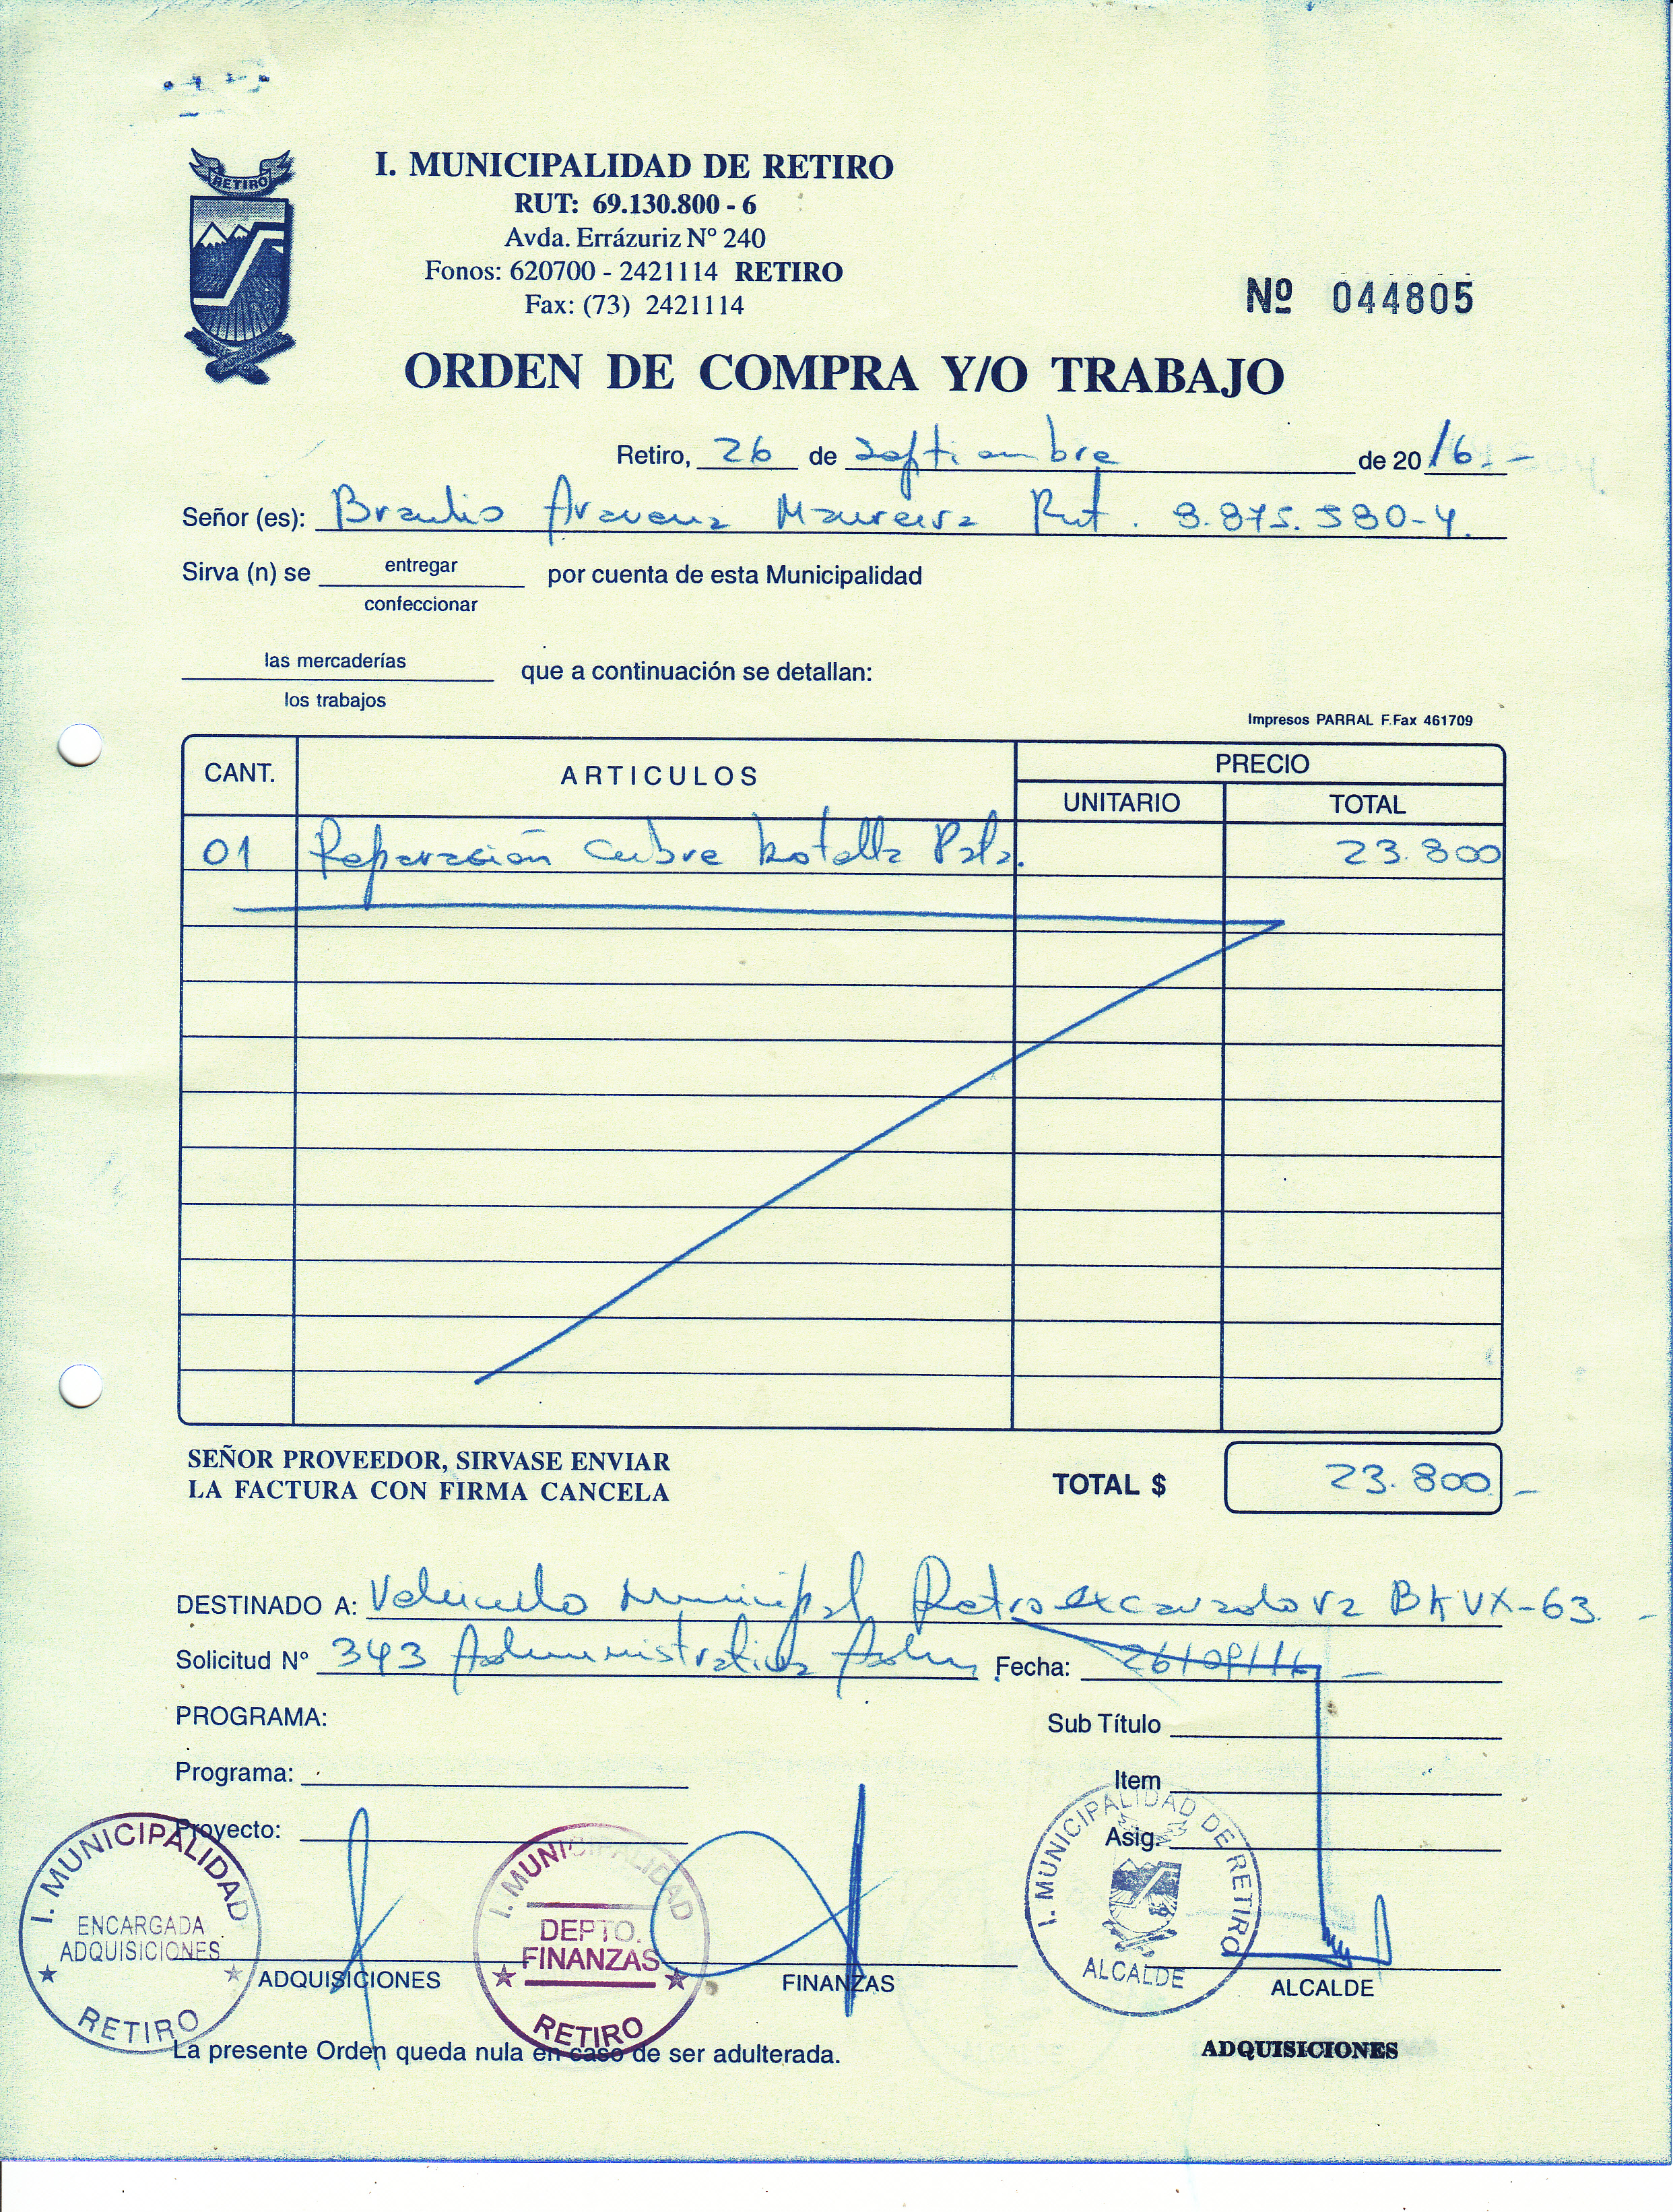 RETIRO
I. MUNICIPALIDAD DE RETIRO
RUT: 69.130.800 - 6
Avda. Errázuriz Nº 240
Fonos: 620700 - 2421114 RETIRO
Fax: (73) 2421114
Nº 044805
ORDEN DE COMPRA Y/O TRABAJO
Retiro, 26 de Septiembre de 20 16.-
Señor (es): Braulio Aravena Maureira Rut. 8.875.580-4.
Sirva (n) se entregar por cuenta de esta Municipalidad
confeccionar
las mercaderías que a continuación se detallan:
los trabajos
Impresos PARRAL F.Fax 461709
CANT. ARTICULOS PRECIO
UNITARIO TOTAL
01 Reparación Cubre botella Pala. 23.800
SEÑOR PROVEEDOR, SIRVASE ENVIAR
LA FACTURA CON FIRMA CANCELA
TOTAL $ 23.800.-
DESTINADO A: Vehiculo Municipal Retroexcavadora BKVX-63.-
Solicitud Nº 343 Administrativa Fecha: 26/09/16.-
PROGRAMA: Sub Título
Programa: Item
Proyecto: Asig.
I. MUNICIPALIDAD
ENCARGADA
ADQUISICIONES
RETIRO
I. MUNICIPALIDAD
DEPTO.
FINANZAS
RETIRO
I. MUNICIPALIDAD DE RETIRO
ALCALDE
ADQUISICIONES FINANZAS ALCALDE
La presente Orden queda nula en caso de ser adulterada.
ADQUISICIONES